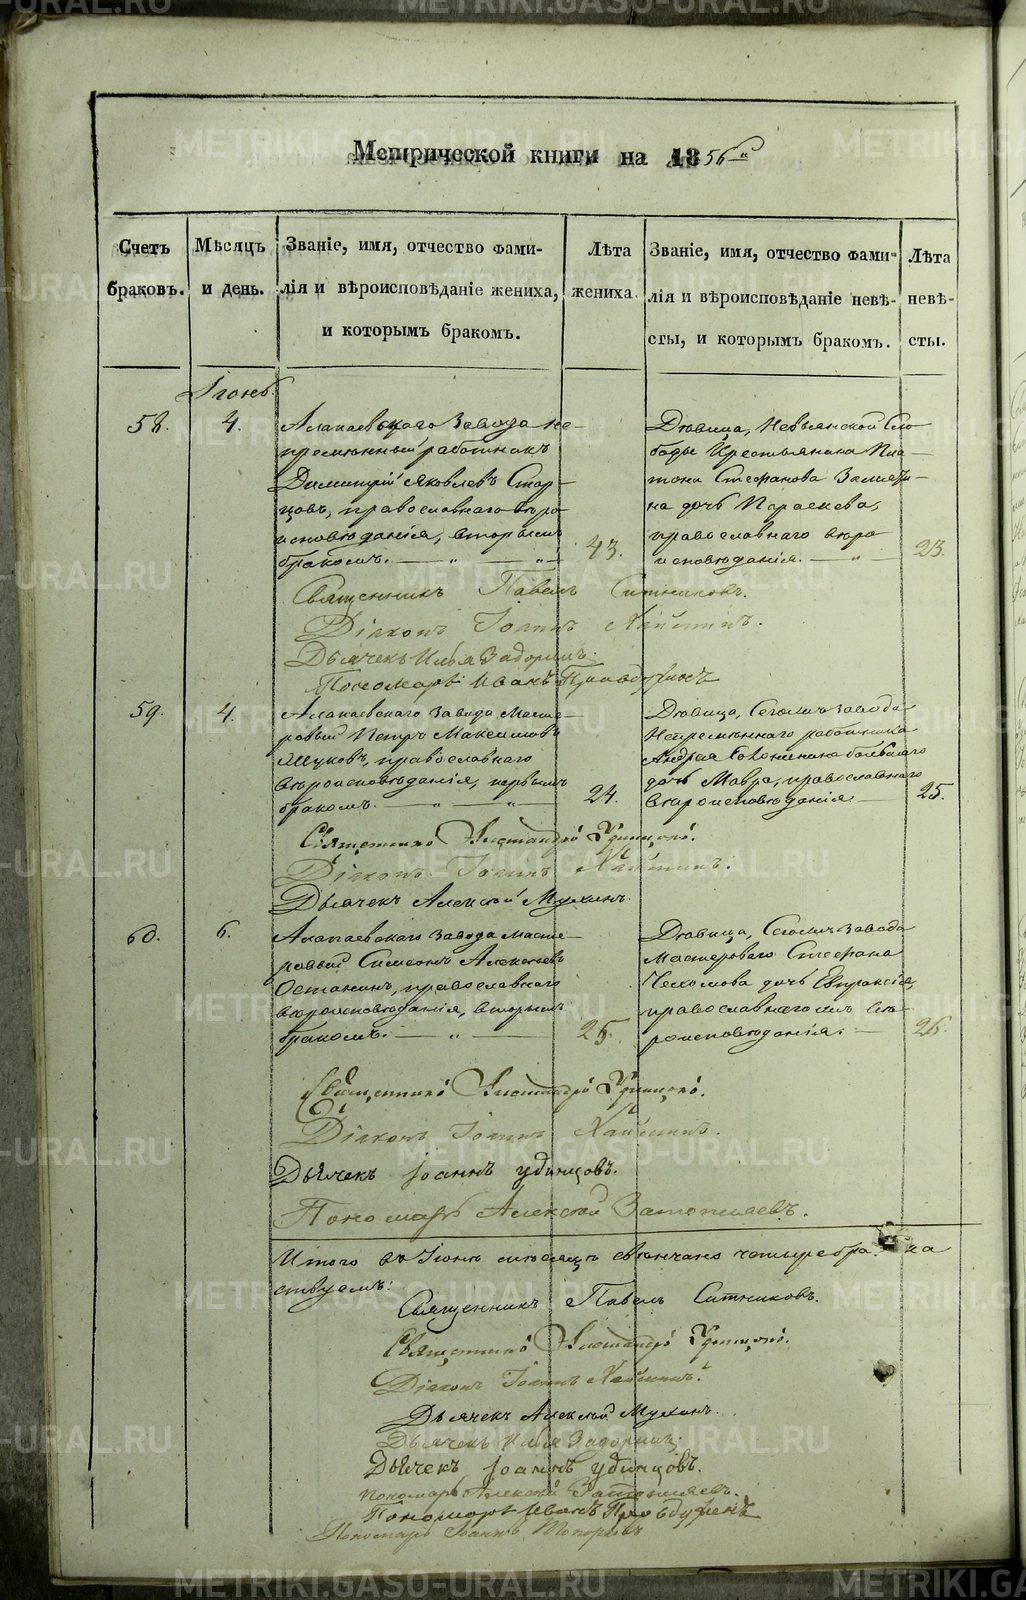 Метрической книги на 1856й
Счетъ браковъ.
Мѣсяцъ и день.
Званіе, имя, отчество фами-
лія и вѣроисповѣданіе жениха,
и которымъ бракомъ.
Лѣта жениха.
Званіе, имя, отчество фами-
лія и вѣроисповѣданіе невѣ-
сты, и которымъ бракомъ.
Лѣта невѣ-
сты.
58.
4.
Алапаевскаго Завода не-
премѣнный работникъ
Димитрій Яковлевъ Стар-
цовъ, православнаго вѣро
исповѣданія, вторымъ
бракомъ.
43.
Дѣвица, Невьянской Сло
боды Крестьянина Пла-
тона Стефанова
на дочь Параскева,
православнаго вѣро
исповѣданія.
23.
Священникъ Павелъ Ситниковъ.
Діаконъ Іоаннъ
Дьячекъ Илья Задоринъ.
Пономарь Иванъ
59.
4.
Алапаевскаго Завода Масте-
ровый Петръ Максимовъ
православнаго
вѣроисповѣданія, первымъ
бракомъ.
24.
Дѣвица, Сегожъ завода
Непремѣннаго работника
Андрея
дочь Мавра, православнаго
вѣроисповѣданія.
25.
Священникъ Александръ Удинцовъ.
Діаконъ Іоаннъ
Дьячекъ Алексій Мухинъ.
60.
6.
Алапаевскаго Завода Масте-
ровый Симеонъ Алексѣевъ
Останинъ, православнаго
вѣроисповѣданія, вторымъ
бракомъ.
25.
Дѣвица, Сегожъ Завода
Мастероваго Стефана
дочь Евпраксія,
православнагожъ вѣ-
роисповѣданія.
26.
Священникъ Александръ Удинцовъ.
Діаконъ Іоаннъ
Дьячекъ Іоаннъ Удинцовъ.
Пономарь Алексій
Итого въ Іюнѣ мѣсяцѣ вѣнчано четыре бра ка
ствуемъ:
Священникъ Павелъ Ситниковъ.
Священникъ Александръ Удинцовъ.
Діаконъ Іоаннъ
Дьячекъ Алексій Мухинъ.
Дьячекъ Илья Задоринъ.
Дьячекъ Іоаннъ Удинцовъ.
Пономарь Алексій
Пономарь Иванъ
Пономарь Іоаннъ Топорковъ
METRIKI.GASO-URAL.RU